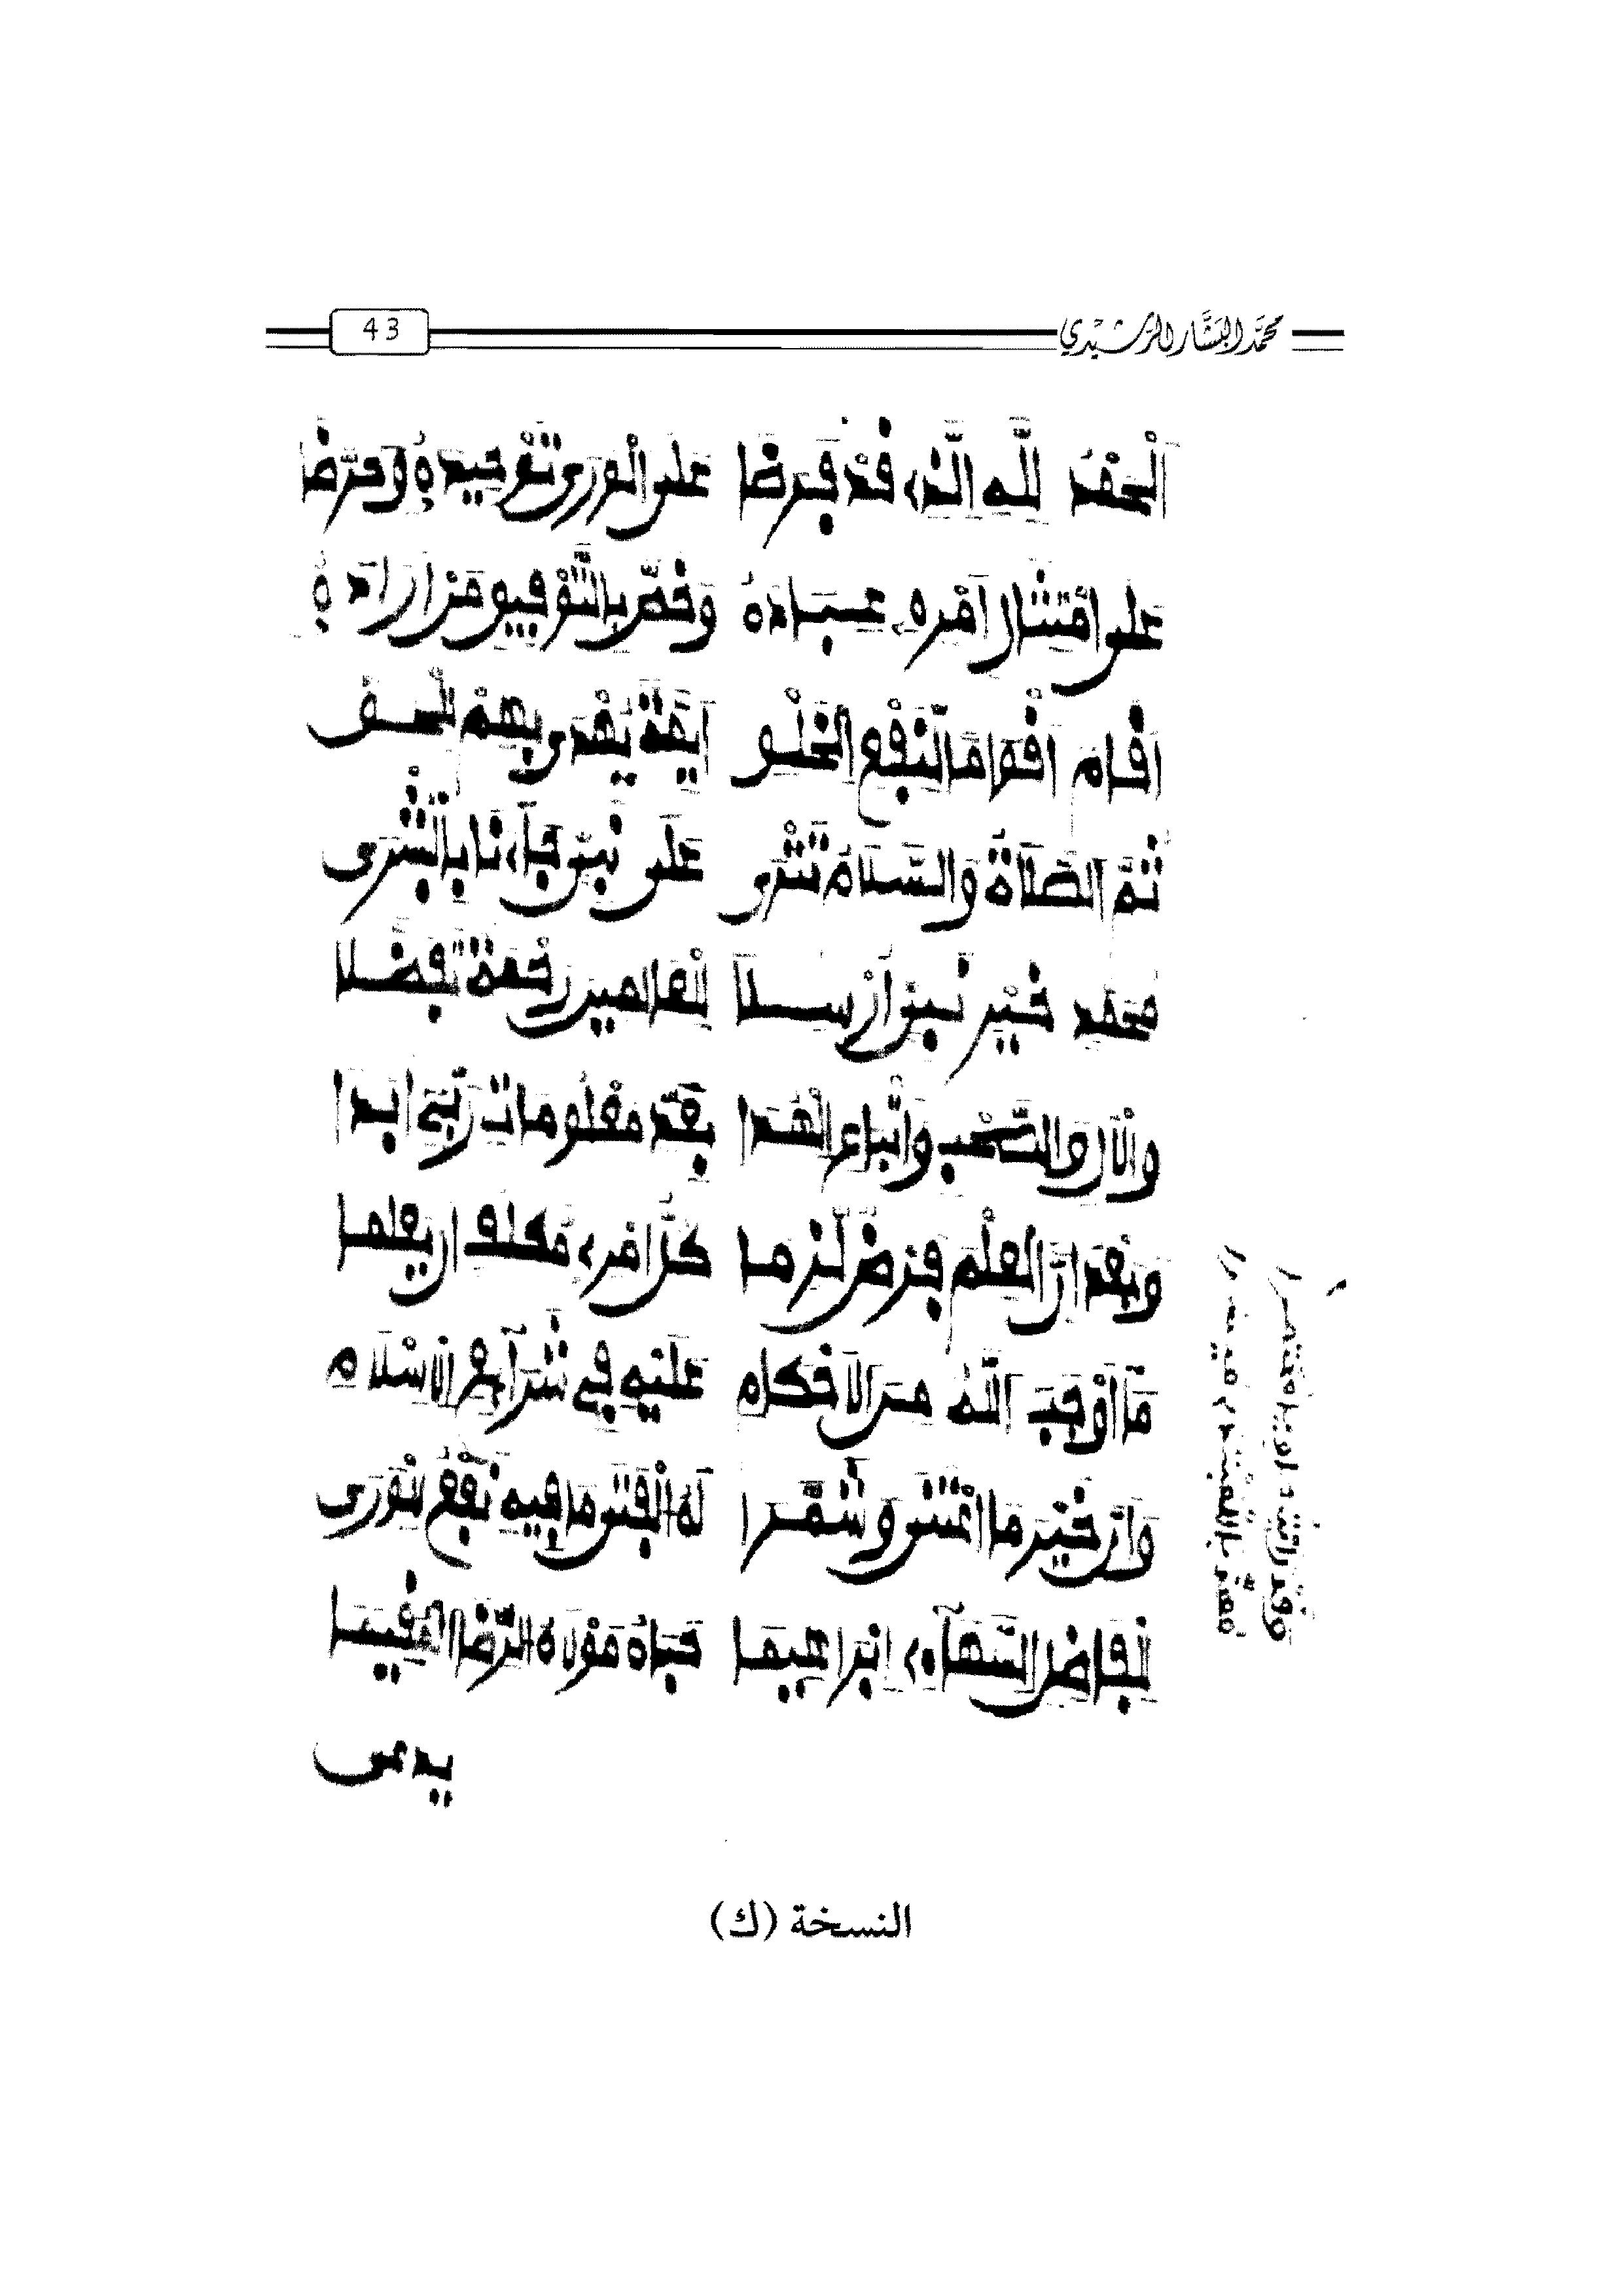 محمد البشار الرشيدي
43
اَلْحَمْدُ لِلَّهِ الَّذِي قَدْ فَرَضَا عَلَى الْوَرَى تَوْحِيدَهُ وَحَرَّضَا
عَلَى امْتِثَالِ أَمْرِهِ عِبَادَهُ وَخَصَّ بِالتَّوْفِيقِ مَنْ أَرَادَهُ
أَقَامَ أَقْوَامًا لِّنَفْعِ الْخَلْقِ أَيِمَّةً يَهْدِي بِهِمْ لِلْحَقِّ
ثُمَّ الصَّلَاةُ وَالسَّلَامُ تَتْرَى عَلَى نَبِيٍّ جَاءَنَا بِالْبُشْرَى
مُحَمَّدٍ خَيْرِ نَبِيٍّ أُرْسِلَا لِلْعَالَمِينَ رَحْمَةً تَفَضُّلَا
وَالْآلِ وَالصَّحْبِ وَأَتْبَاعِ الْهُدَا بِعَدِّ مَعْلُومَاتِ رَبِّي أَبَدَا
وَبَعْدُ إِنَّ الْعِلْمَ فَرْضٌ لَزِمَا كُلَّ امْرِئٍ مُكَلَّفٍ أَنْ يَعْلَمَا
مَا أَوْجَبَ اللَّهُ مِنَ الْأَحْكَامِ عَلَيْهِ فِي شَرَائِعِ الْإِسْلَامِ
وَإِنَّ خَيْرَ مَا اعْتَنَى وَشَمَّرَا لَهُ الْفَتَى مَا فِيهِ نَفْعٌ لِلْوَرَى
حَبَاهُ مَوْلَاهُ الرِّضَا
النسخة (ك)